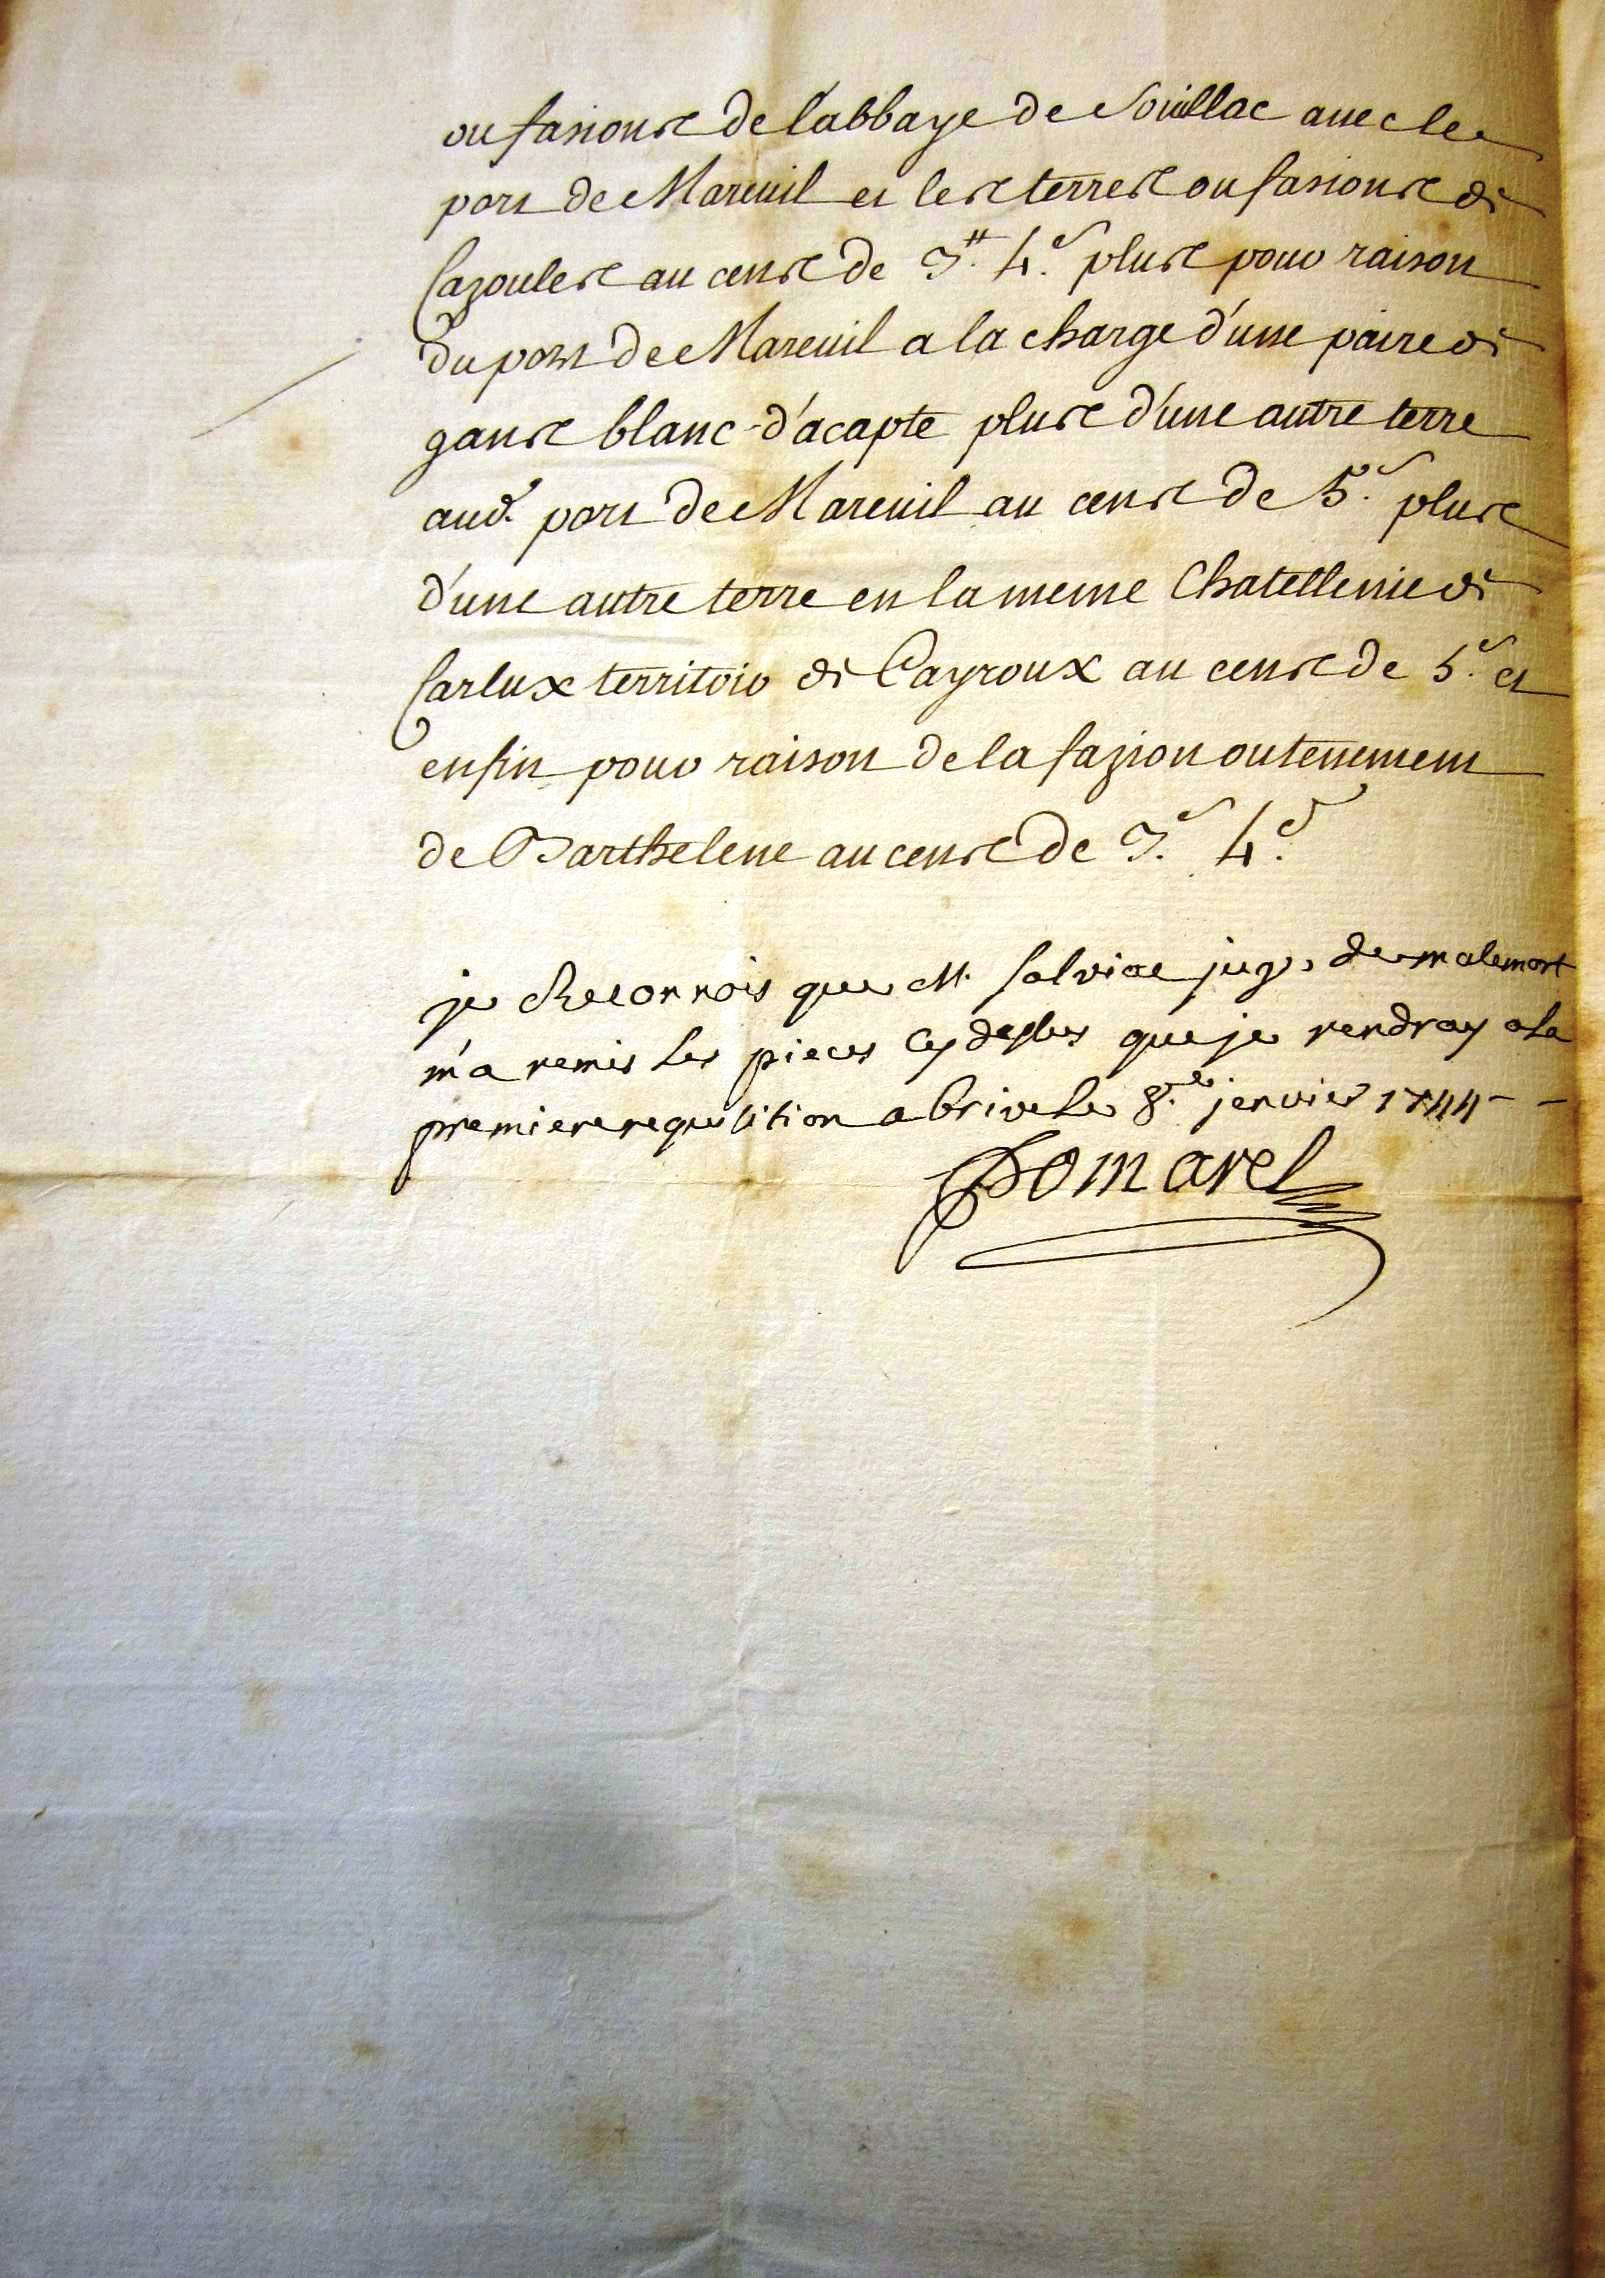 ou fasions de l'abbaye de Souillac avec le
port de Mareuil et les terres ou fasions de
Cazoules au cens de 3.# 4.s plus pour raison
du port de Mareuil a la charge d'une paire de
gans blanc d'acapte plus d'une autre terre
aud. port de Mareuil au cens de 5.s plus
d'une autre terre en la meme Chatellenie de
Carlux territoir de Cayroux au cens de 5.s et
enfin pour raison de la fazion ou tenement
de Barthelene au cens de 3.s 4.d
je Reconnois que M. salviae juge de malemort
m'a remis les pieces cy dessus que je rendray a la
premiere requisition a brive le 8.e jenvier 1744 - -
Domarel